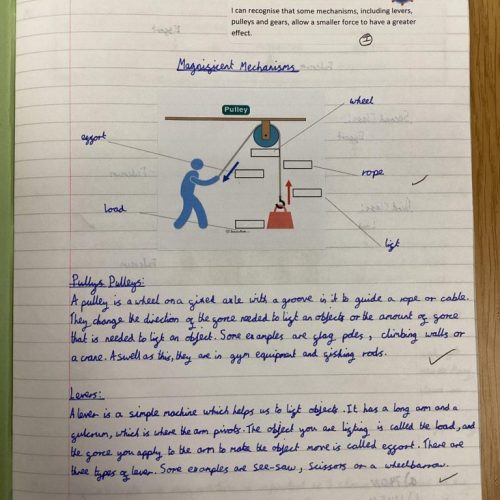 I can recognise that some mechanisms, including levers,
pulleys and gears, allow a smaller force to have a greater
effect.
I
Magnificent Mechanisms
wheel
Pulley
effort
rope
load
lift
Pullys Pulleys:
A pulley is a wheel on a fixed axle with a groove in it to guide a rope or cable.
They change the direction of the force needed to lift an objects or the amount of force
that is needed to lift an object. Some examples are flag poles, climbing walls or
a crane. Aswell as this, they are in gym equipment and fishing rods.
Levers:
A lever is a simple machine which helps us to lift objects. It has a long arm and a
fulcrum, which is where the arm pivots. The object you are lifting is called the load, and
the force you apply to the arm to make the object move is called effort. There are
three types of lever. Some examples are see-saw, scissors or a wheelbarrow.